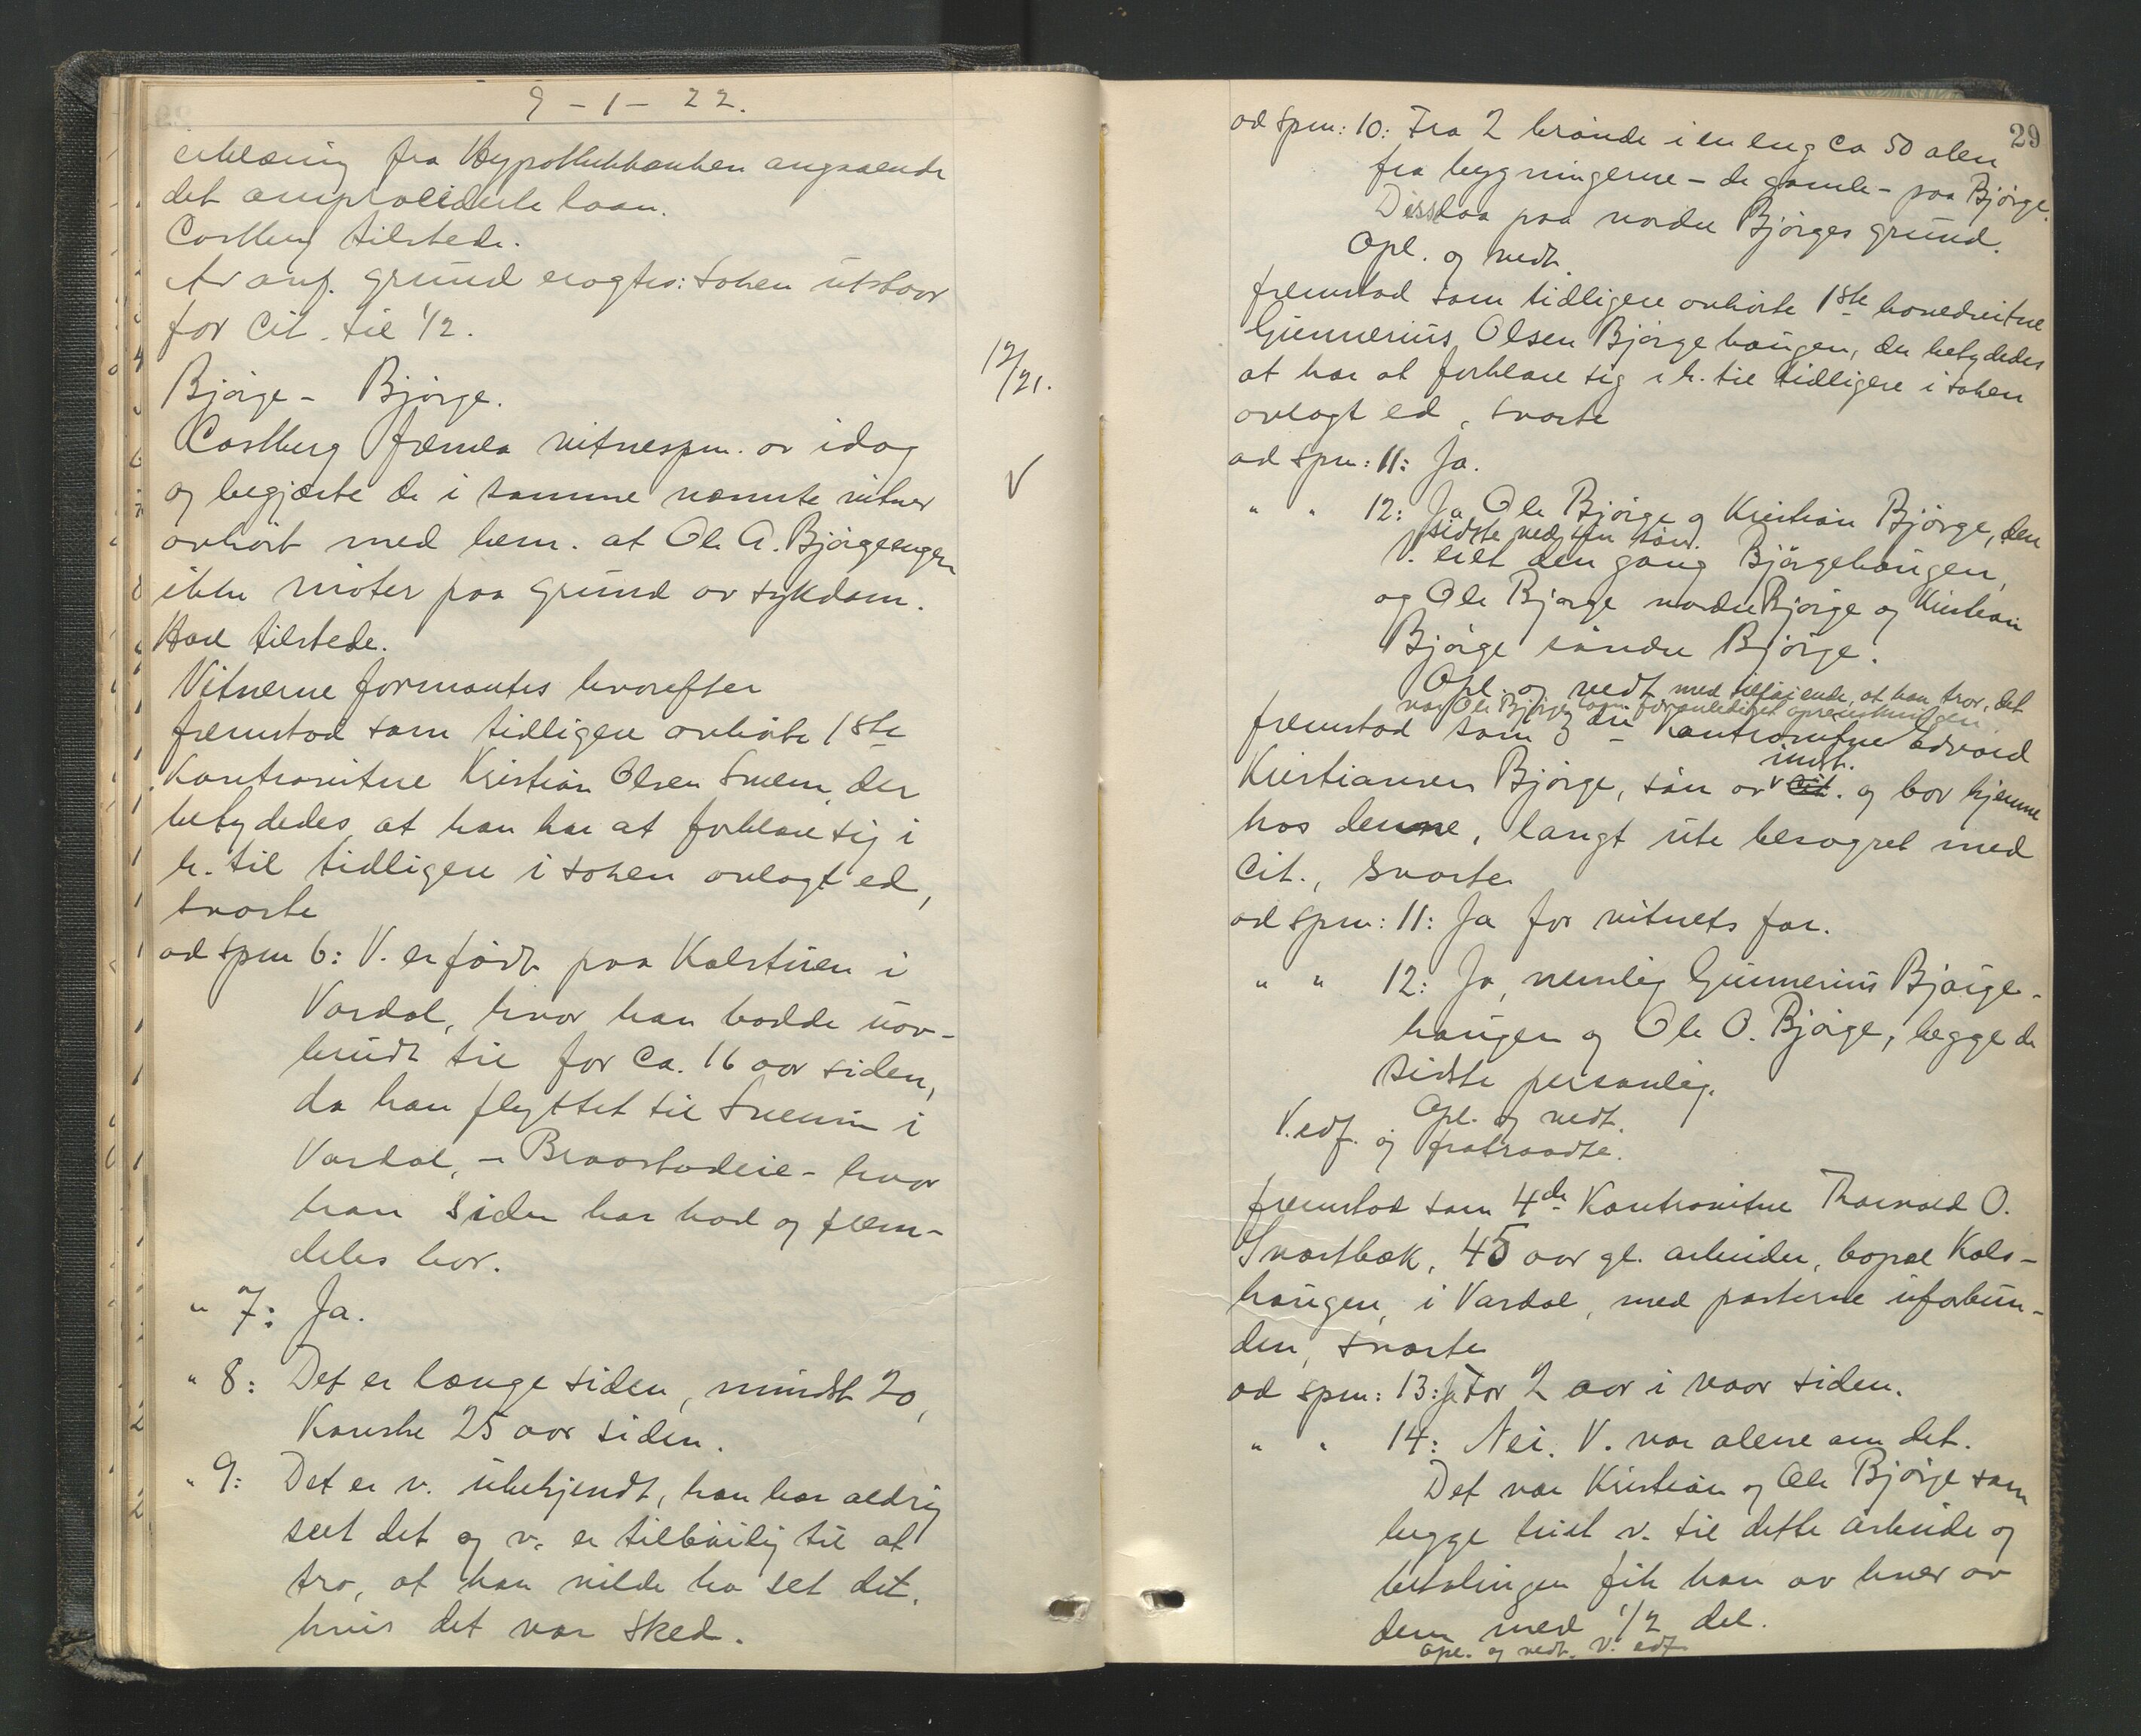 9 - 1 - 22.
erklæring fra Hypothekbanken angaaende
det omprioriterte laan.
Castberg tilstede.
Av anf. grund eragtes: Saken utstaar
for cit. til 1/2.
12/21.
Bjørge - Bjørge.
Castberg fremla vitnespm. av idag
V
og begjærte de i samme nævnte vitner
avhørt med bem. at Ole A. Bjørgeengen
ikke møter paa grund av sykdom.
Hoel tilstede.
Vitnerne formantes hvorefter
fremstod som tidligere avhørte 1ste
Kontravitne Kristian Olsen Sveen, der
betydedes, at han har at forklare sig i
h. til tidligere i saken avlagt ed,
svarte
ad spm 6: V. er født paa Kalstuen i
Vardal, hvor han bodde uav-
brudt til for ca. 16 aar siden,
da han flyttet til Sveen i
Vardal, - Braastadeie - hvor
han siden har bod og frem-
deles bor.
" 7: Ja.
" 8: Det er længe siden, mindst 20,
Kanske 25 aar siden.
" 9: Det er v. ubekjendt, han har aldrig
seet det og v. er tilbøielig til at
tro, at han vilde ha set det,
hvis det var sked.
29
ad spm: 10: Fra 2 brønde i en eng ca 50 alen
fra bygningerne - de gamle - paa Bjørge.
Disse laa paa nordre Bjørges grund.
Opl. og vedt.
fremstod som tidligere avhørte 1ste hovedvitne
Gunnerius Olsen Bjørgehaugen, der betydedes
at han at forklare sig i h. til tidligere i saken
avlagt ed, svarte
ad spm: 11: Ja.
" " 12: Ja Ole Bjørge og Kristian Bjørge, den
sidste ved sin søn.
V. eiet den gang Bjørgehaugen,
og Ole Bjørge nordre Bjørge og Kristian
Bjørge søndre Bjørge.
Opl. og vedt. med tilføiende, at han tror, det
var Ole Bjørge som foranlediget oprenskningen
fremstod som 3die Kontravitne Edvard
Kristiansen Bjørge, søn av indst. cit. og bor hjemme
hos denne, langt ute besvogret med
cit., svarte
ad spm: 11: Ja for vitnets far.
" " 12: Ja, nemlig Gunnerius Bjørge-
haugen og Ole O. Bjørge, begge de
sidste personlig.
Opl. og vedt.
V. edf. og fratraadte.
fremstod som 4de Kontravitne Thorvald O.
Svartbæk, 45 aar gl. arbeider, bopæl Kals-
haugen, i Vardal, med parterne uforbun-
den, svarte
ad spm: 13: Ja For 2 aar i vaar siden.
" " 14: Nei. V. var alene om det.
Det var Kristian og Ole Bjørge som
begge leiet v. til dette arbeide og
betalingen fik han av hver av
dem med 1/2 del.
Opl. og vedt. V. edf.